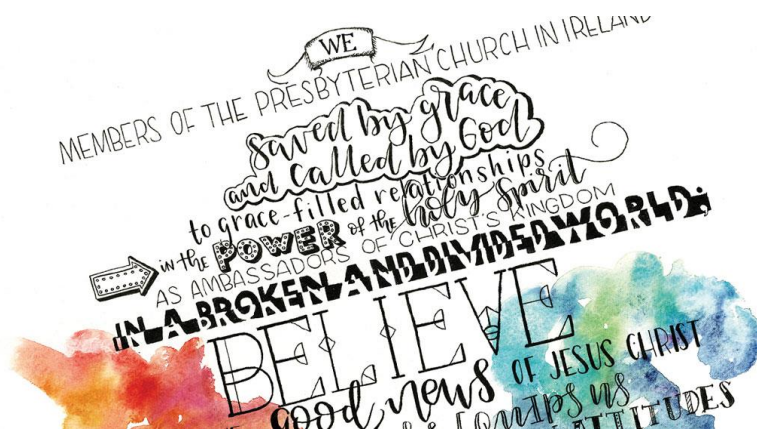 WE
MEMBERS OF THE PRESBYTERIAN CHURCH IN IRELAND
saved by grace
and called by God
to grace-filled relationships
in the POWER of the holy Spirit
AS AMBASSADORS OF CHRIST'S KINGDOM
IN A BROKEN AND DIVIDED WORLD;
BELIEVE
good news OF JESUS CHRIST
equips us
ATTITUDES